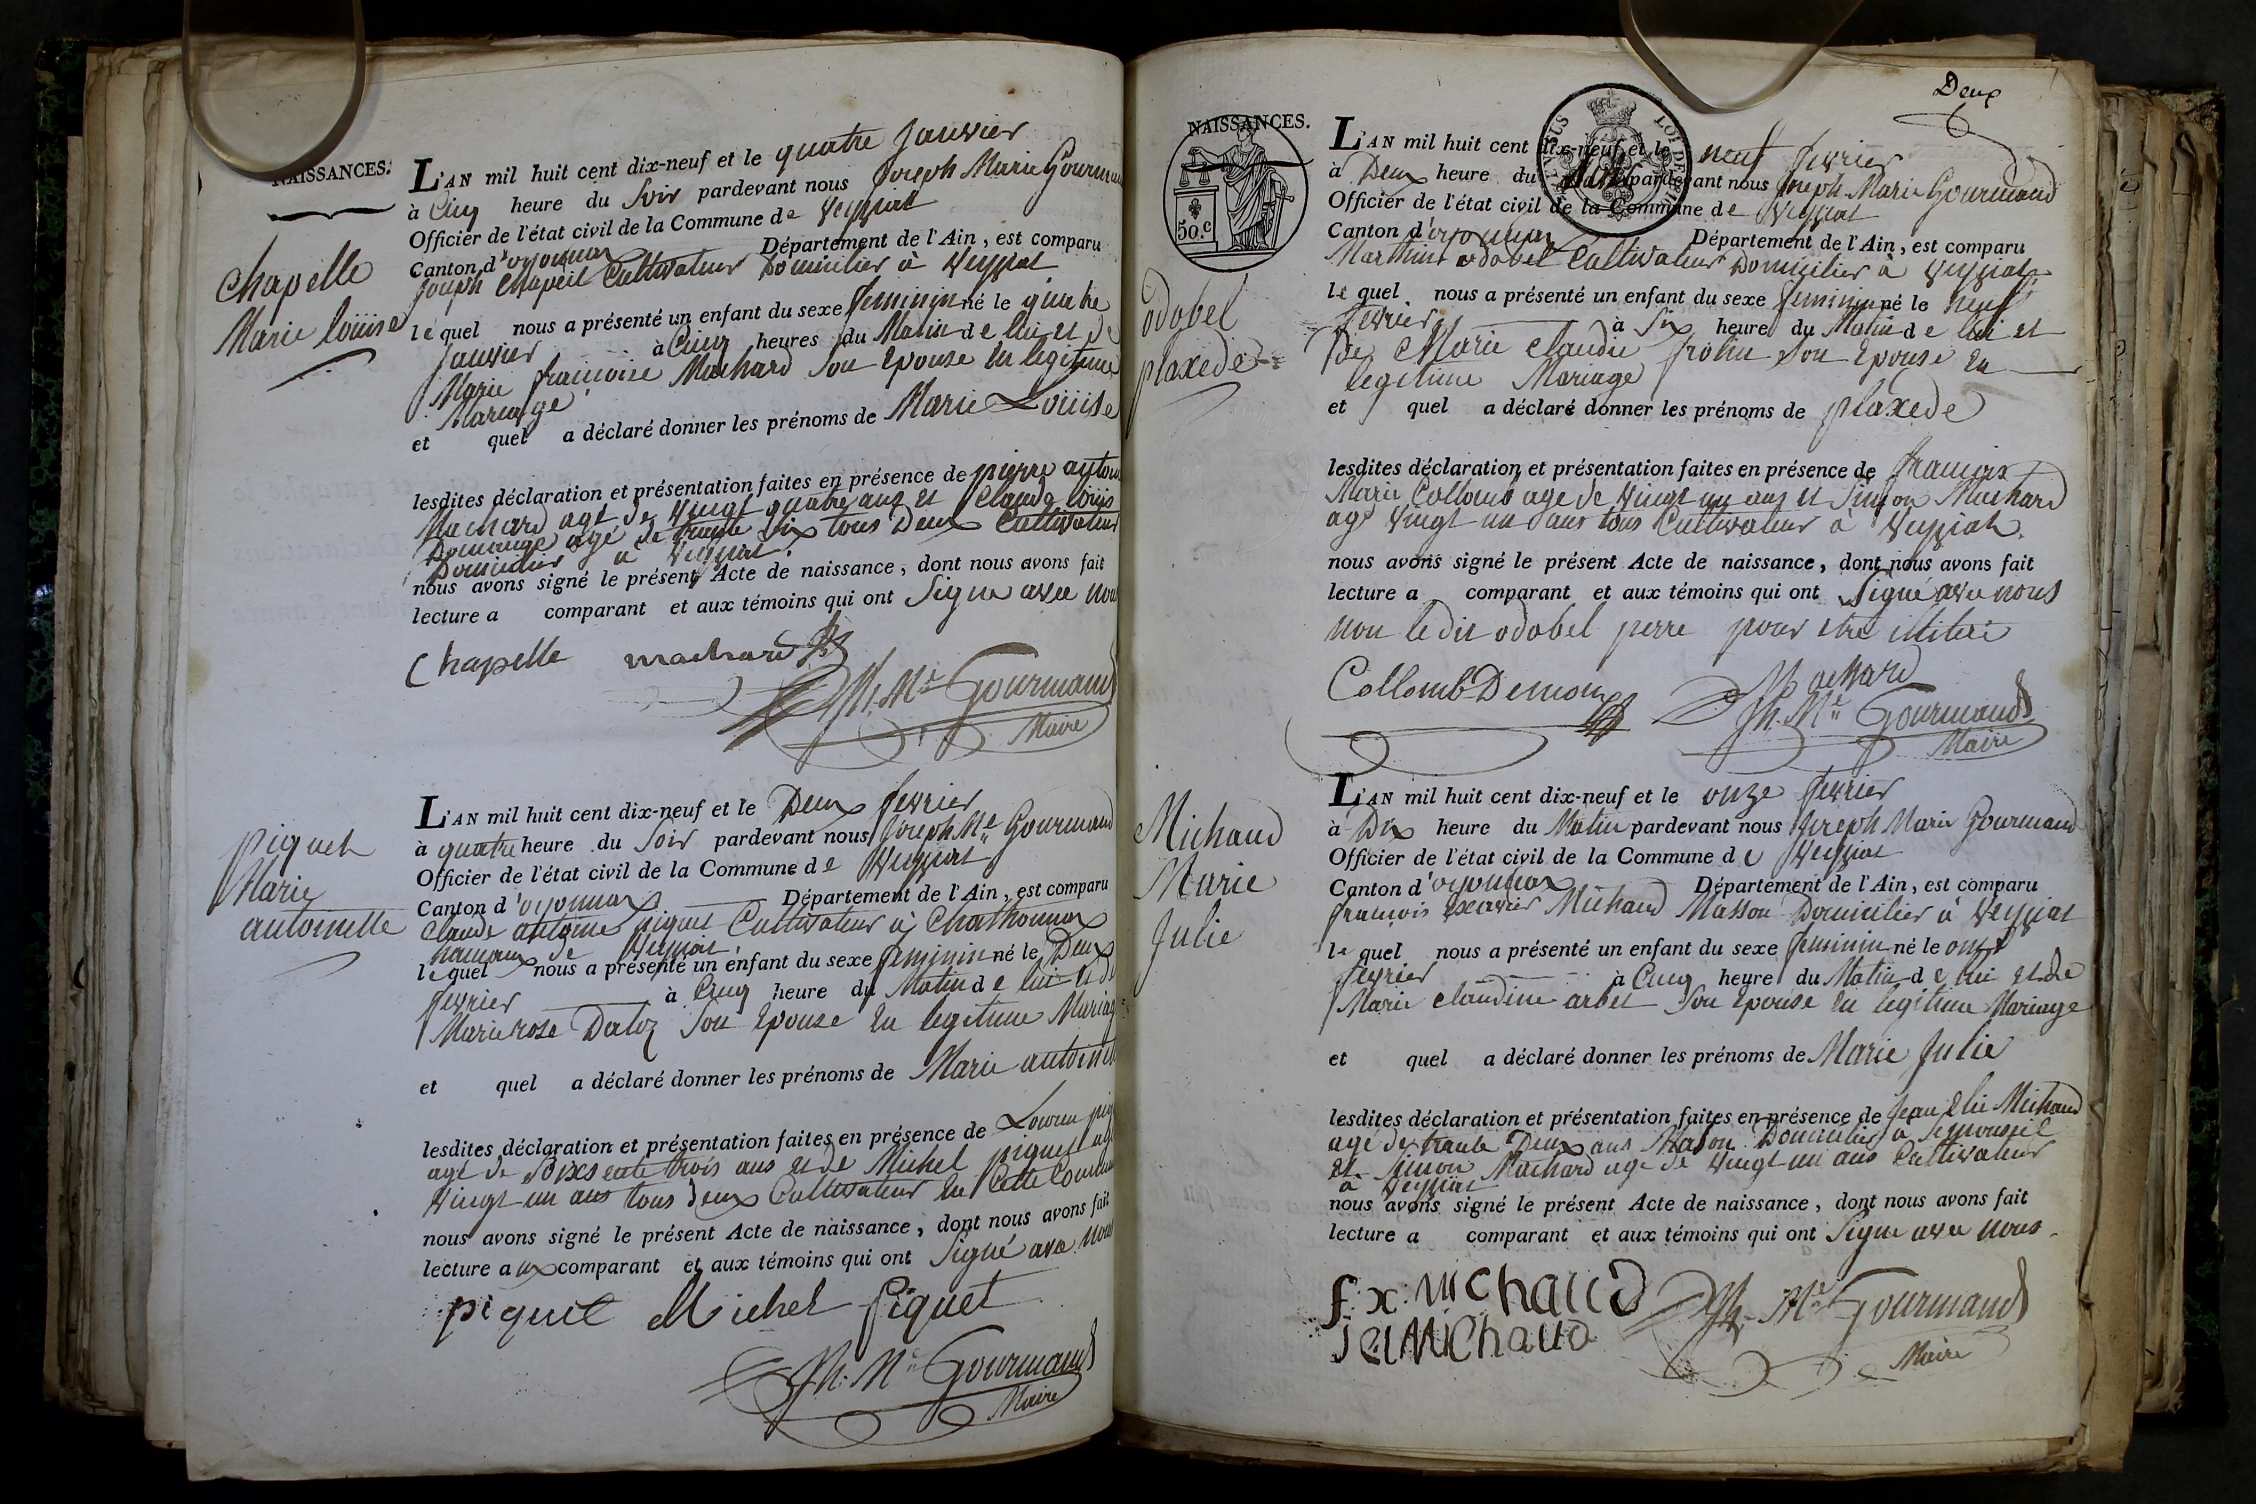 NAISSANCES.
L'AN mil huit cent dix-neuf et le quatre Janvier
à Cinq heure du Soir pardevant nous Joseph Marie Gourmand
Officier de l'état civil de la Commune de Veyziat
Canton d'oyonnax Département de l'Ain, est comparu
Joseph Chapell Cultivateur Domicilier à Veyziat
chapelle
Marie loüise
lequel nous a présenté un enfant du sexe feminin né le quatre
Janvier à Cinq heures du Matin de lui et de
Marie françoise Machard son Epouse en legitime
Mariage
et quel a déclaré donner les prénoms de Marie Loüise
lesdites déclaration et présentation faites en présence de pierre antoine
Machard agé de vingt quatre ans et Claude loüis
Domange agé de trente Six tous Deux Cultivateur
Domicilier à Veyziat.
nous avons signé le présent Acte de naissance, dont nous avons fait
lecture a comparant et aux témoins qui ont Signé avec nous
Chapelle machard
Jh. Mie Gourmand
Maire
piquet
Marie
antoinette
L'AN mil huit cent dix-neuf et le Deux fevrier
à quatre heure du Soir pardevant nous Joseph Mie Gourmand
Officier de l'état civil de la Commune de Veyziat
Canton d'oyonnax Département de l'Ain, est comparu
Claude antoine piquet Cultivateur à Charthonnax
hameaux de Veyziat
lequel nous a présenté un enfant du sexe feminin né le Deux
fevrier à Cinq heure du Matin de lui et de
Marie rose Daloz son Epouse en legitime Mariage
et quel a déclaré donner les prénoms de Marie antoinette
lesdites déclaration et présentation faites en présence de
agé de Soixsente trois ans et de Michel piquet agé
Vingt un ans tous deux Cultivateur en Cette Commune
nous avons signé le présent Acte de naissance, dont nous avons fait
lecture aux comparant et aux témoins qui ont Signé avec nous
piquet Michel Piquet
Jh. Mie Gourmand
Maire
Deux
NAISSANCES.
50.c
LOI DE
L'AN mil huit cent dix-neuf et le neuf fevrier
à Deux heure du pardevant nous Joseph Marie Gourmand
Officier de l'état civil de la Commune de Veyziat
Canton d'oyonnax Département de l'Ain, est comparu
Marthin odobel Cultivateur Domicilier à Veyziat
odobel
plaxede
lequel nous a présenté un enfant du sexe feminin né le neuf
fevrier à Six heure du Matin de lui et
de Marie claudie son Epouse en
legitime Mariage
et quel a déclaré donner les prénoms de plaxede
lesdites déclaration et présentation faites en présence de françois
Marie Collomb agé de Vingt un ans et Simon Machard
agé vingt un ans tous Cultivateur à Veyziat.
nous avons signé le présent Acte de naissance, dont nous avons fait
lecture a comparant et aux témoins qui ont Signé avec nous
non le dit odobel perre pour etre
Collomb Demon Machard
Jh. Mie Gourmand
Maire
Michaud
Marie
Julie
L'AN mil huit cent dix-neuf et le onze fevrier
à Dix heure du Matin pardevant nous Joseph Marie Gourmand
Officier de l'état civil de la Commune de Veyziat
Canton d'oyonnax Département de l'Ain, est comparu
françois Exavier Michaud Masson Domicilier à Veyziat
lequel nous a présenté un enfant du sexe feminin né le onze
fevrier à Cinq heure du Matin de lui et de
Marie claudine arbet son Epouse en legitime Mariage
et quel a déclaré donner les prénoms de Marie Julie
lesdites déclaration et présentation faites en présence de Jean Elie Michaud
agé de trente Deux ans Mason Domicilier à
et Simon Machard agé de Vingt un ans Cultivateur
à Veyziat
nous avons signé le présent Acte de naissance, dont nous avons fait
lecture a comparant et aux témoins qui ont Signé avec nous.
f. x. Michaud
Jel Michaud
Jh. Mie Gourmand
Maire